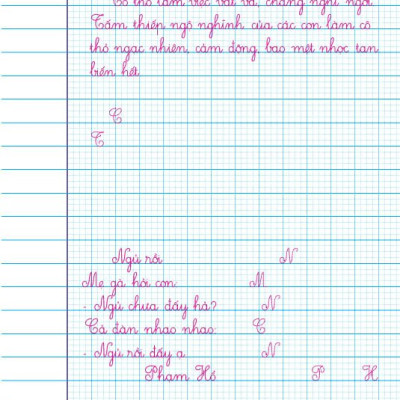 Cô thợ làm việc vất vả, chẳng nghỉ ngơi.
Tấm thiếp ngộ nghĩnh của các con làm cô
thỏ ngạc nhiên, cảm động, bao mệt nhọc tan
biến hết.
C
T
Ngủ rồi N
Mẹ gà hỏi con: M
- Ngủ chưa đấy hả? N
Cả đàn nhao nhao: C
- Ngủ rồi đấy ạ N
Phạm Hổ P H